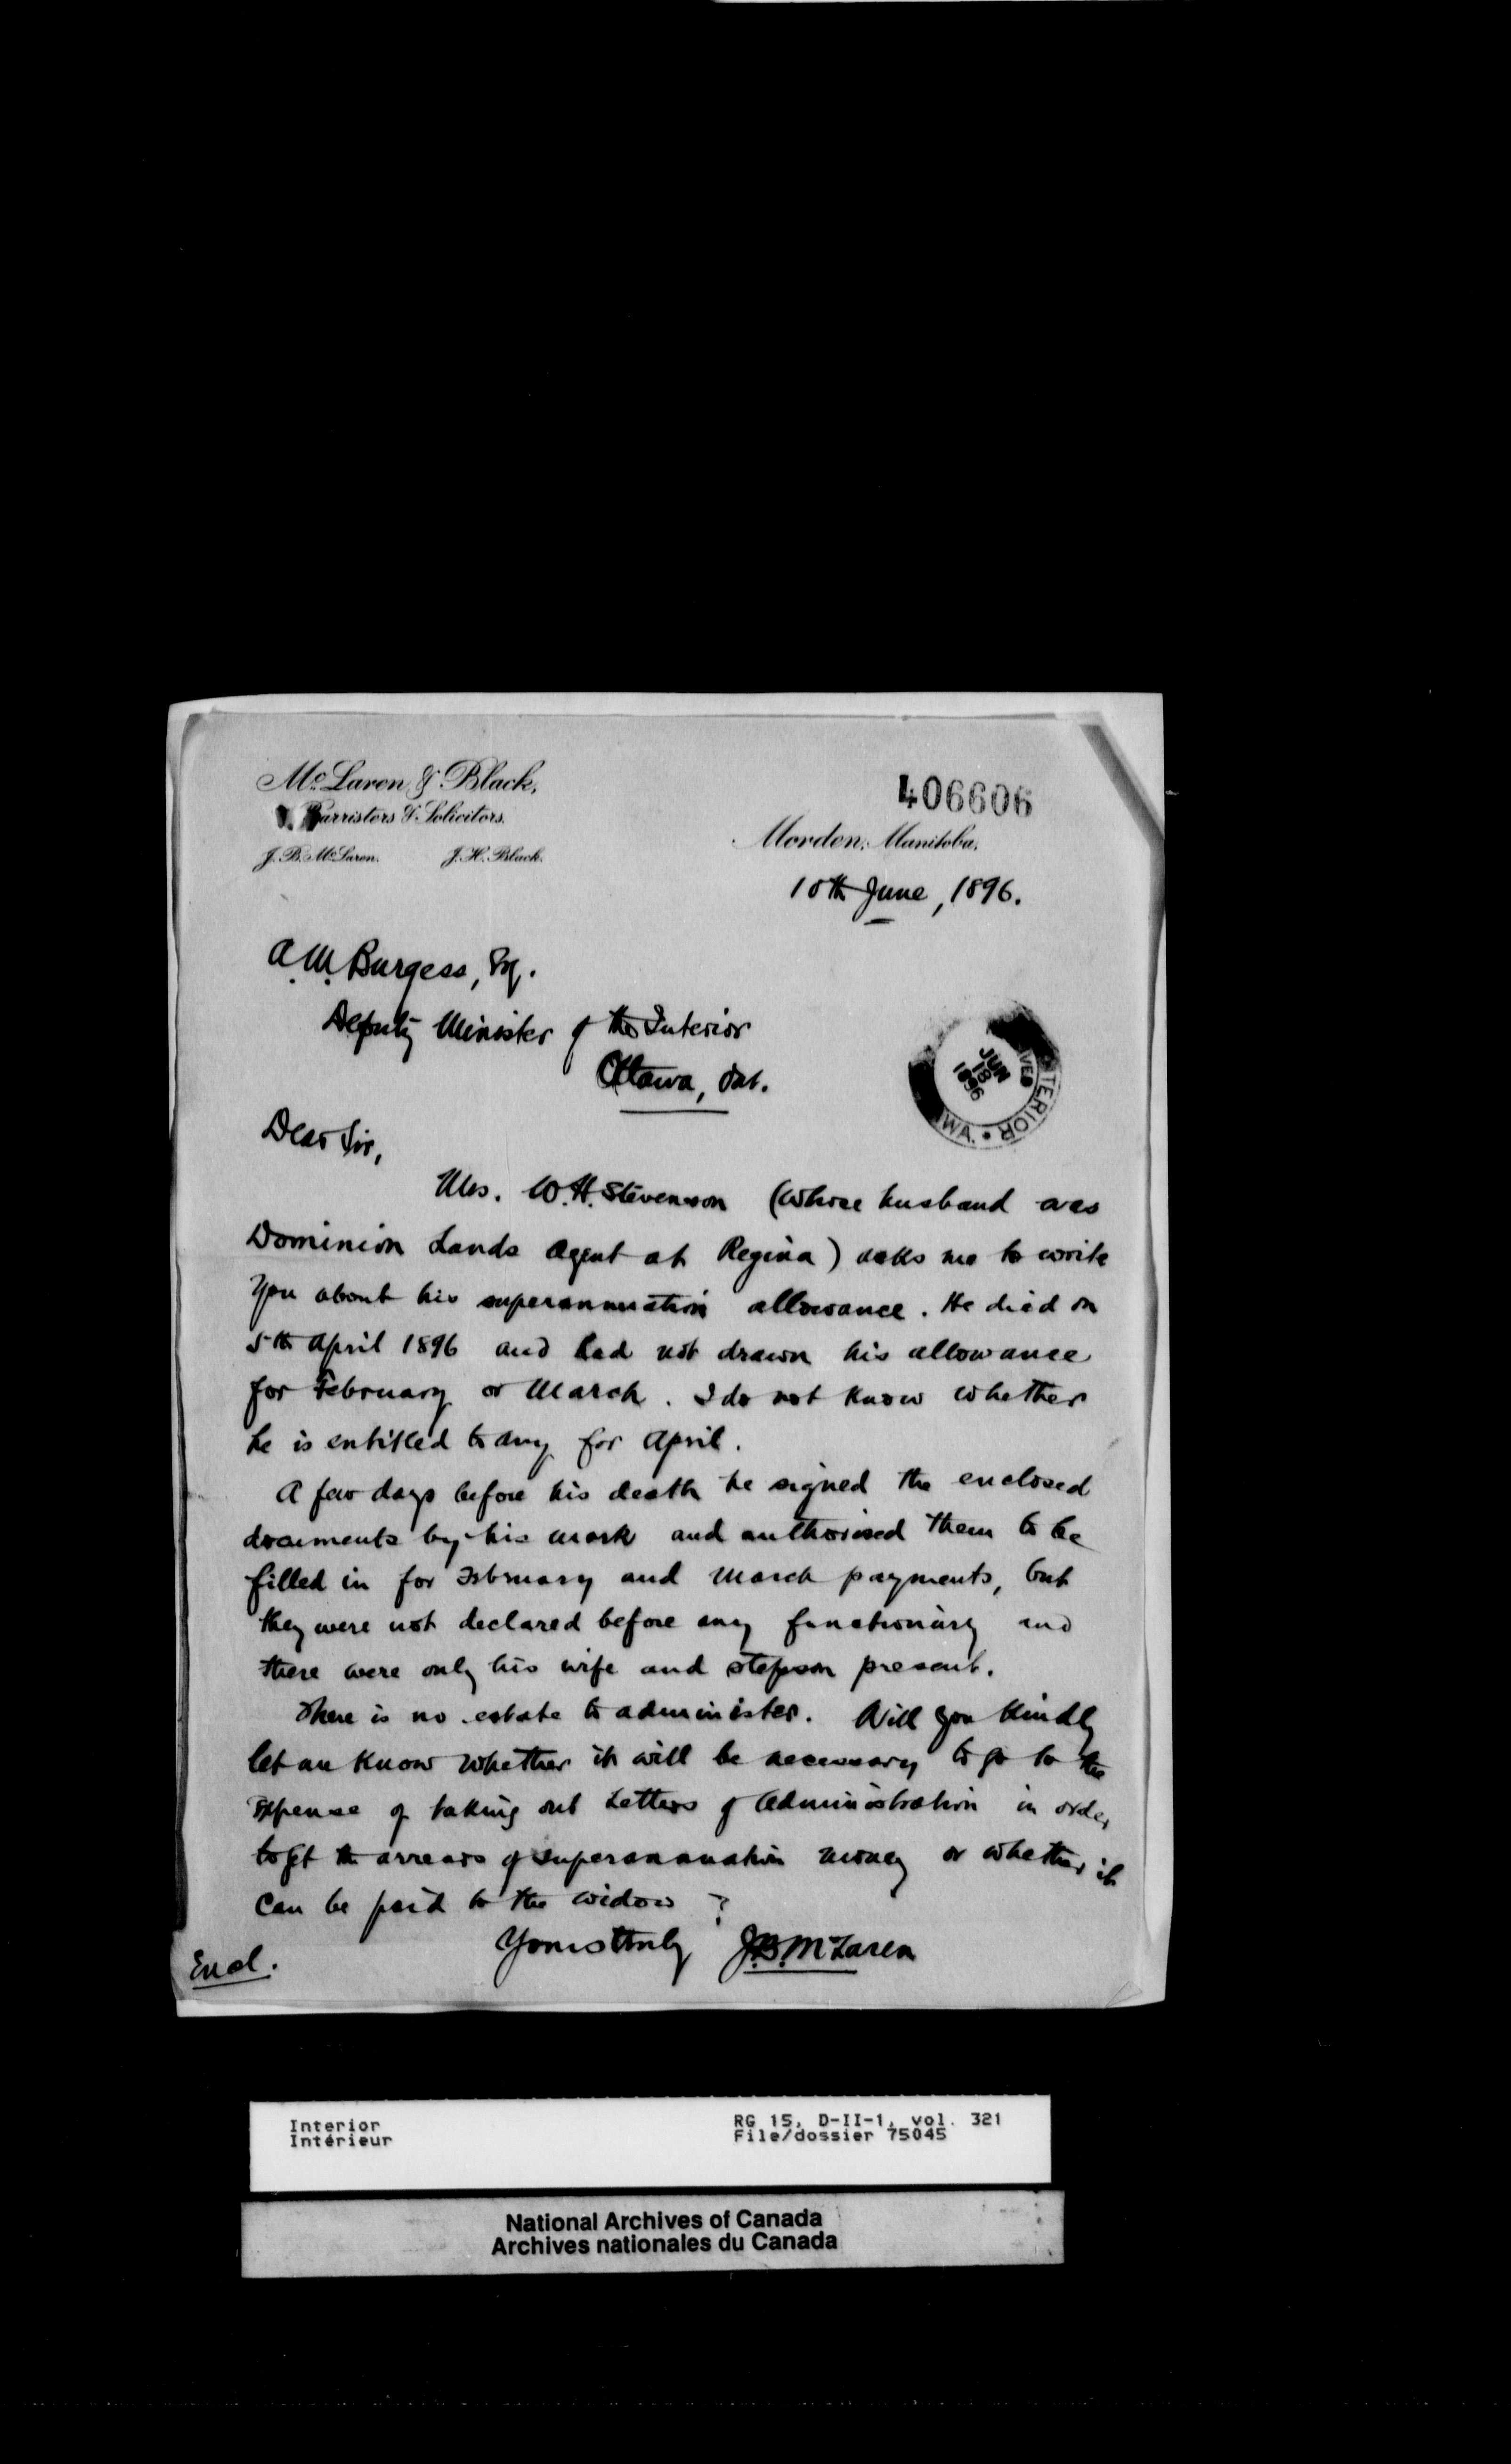 McLaren & Black,
Barristers & Solicitors.
J. B. McLaren. J. H. Black.
406606
Morden, Manitoba,
10th June, 1896.
A. M. Burgess, Esq.
Deputy Minister of the Interior
Ottawa, Ont.
JUN
18
1896
VED
TERIOR
WA.
Dear Sir,
Mrs. W. H. Stevenson (whose husband was
Dominion Lands Agent at Regina) asks me to write
you about his superannuation allowance. He died on
5th April 1896 and had not drawn his allowance
for February or March. I do not know whether
he is entitled to any for April.
A few days before his death he signed the enclosed
documents by his mark and authorised them to be
filled in for February and March payments, but
they were not declared before any functionary and
there were only his wife and stepson present.
There is no estate to administer. Will you kindly
let me know whether it will be necessary to go to the
expense of taking out Letters of Administration in order
to get the arrears of superannuation money or whether it
can be paid to the widow?
Yours truly J.B. McLaren
Encl.
Interior
Intérieur
RG 15, D-II-1, vol. 321
File/dossier 75045
National Archives of Canada
Archives nationales du Canada